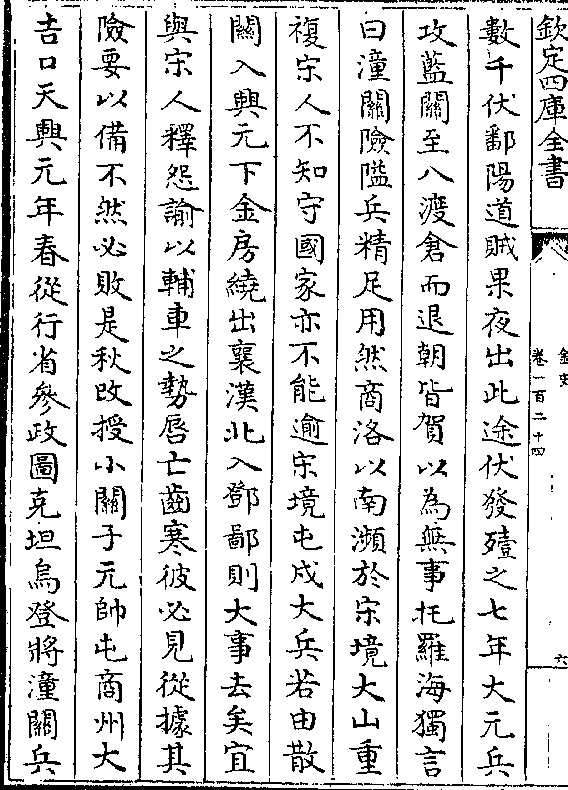 欽定四庫全書
金史
卷一百二十四
六
數千伏鄱陽道賊果夜出此途伏發殪之七年大元兵
攻藍關至八渡倉而退朝皆賀以為無事托羅海獨言
曰潼關險隘兵精足用然商洛以南瀕於宋境大山重
複宋人不知守國家亦不能逾宋境屯戍大兵若由散
關入興元下金房繞出襄漢北入鄧鄙則大事去矣宜
與宋人釋怨諭以輔車之勢唇亡齒寒彼必見從據其
險要以備不然必敗是秋改授小關子元帥屯商州大
吉口天興元年春從行省參政圖克坦烏登將潼關兵